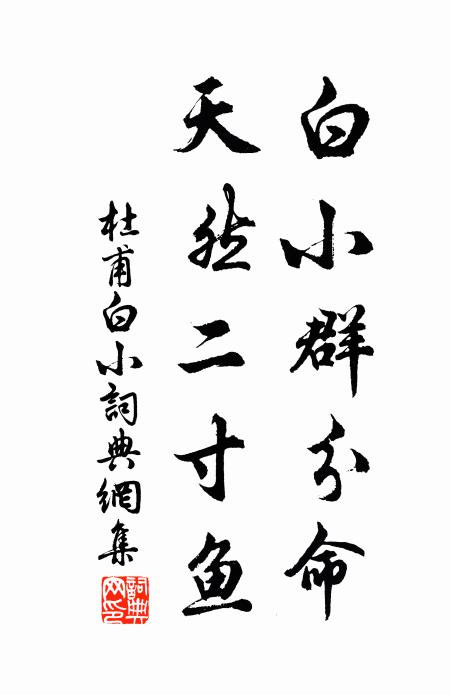 白小群分命
天然二寸鱼
杜甫白小詞典網集
詞典網印